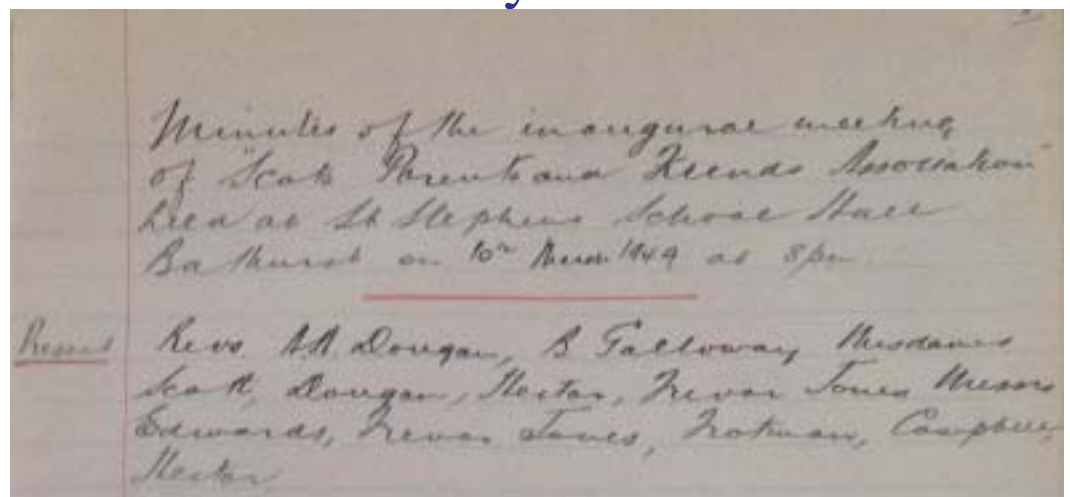 Minutes of the inaugural meeting
of "Scots Parents and Friends Association"
held at St Stephens School Hall
Bathurst on 10th March 1949 at 8pm.
Present Revs A.A. Dougan, B Galloway Mesdames
Scott, Dougan, Hector, Trevor Jones Messrs
Edwards, Trevor Jones, Trotman, Campbell,
Hector